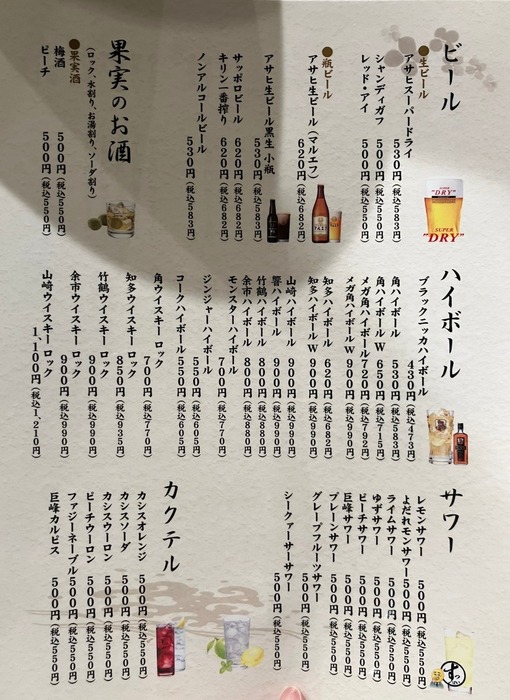 ビール
●生ビール
アサヒスーパードライ 530円(税込583円)
シャンディガフ 500円(税込550円)
レッド・アイ 500円(税込550円)
●瓶ビール
アサヒ生ビール(マルエフ) 620円(税込682円)
アサヒ生ビール黒生 小瓶 530円(税込583円)
サッポロビール 620円(税込682円)
キリン一番搾り 620円(税込682円)
ノンアルコールビール 530円(税込583円)
SUPER "DRY"
SUPER "DRY"
果実のお酒
(ロック、水割り、お湯割り、ソーダ割り)
●果実酒
梅酒 500円(税込550円)
ピーチ 500円(税込550円)
ハイボール
ブラックニッカハイボール 430円(税込473円)
角ハイボール 530円(税込583円)
角ハイボール W 650円(税込715円)
メガ角ハイボール 720円(税込792円)
メガ角ハイボール W 900円(税込990円)
知多ハイボール 620円(税込682円)
知多ハイボール W 900円(税込990円)
山崎ハイボール 900円(税込990円)
響ハイボール 900円(税込990円)
竹鶴ハイボール 800円(税込880円)
余市ハイボール 800円(税込880円)
モンスターハイボール 700円(税込770円)
ジンジャーハイボール 550円(税込605円)
コークハイボール 550円(税込605円)
角ウイスキー ロック 700円(税込770円)
知多ウイスキー ロック 850円(税込935円)
竹鶴ウイスキー ロック 900円(税込990円)
余市ウイスキー ロック 900円(税込990円)
山崎ウイスキー ロック 1,100円(税込1,210円)
サワー
レモンサワー 500円(税込550円)
よだれモンサワー 500円(税込550円)
ライムサワー 500円(税込550円)
ゆずサワー 500円(税込550円)
ピーチサワー 500円(税込550円)
巨峰サワー 500円(税込550円)
プレーンサワー 500円(税込550円)
グレープフルーツサワー 500円(税込550円)
シークァーサーサワー 500円(税込550円)
カクテル
カシスオレンジ 500円(税込550円)
カシスソーダ 500円(税込550円)
カシスウーロン 500円(税込550円)
ピーチウーロン 500円(税込550円)
ファジーネーブル 500円(税込550円)
巨峰カルピス 500円(税込550円)